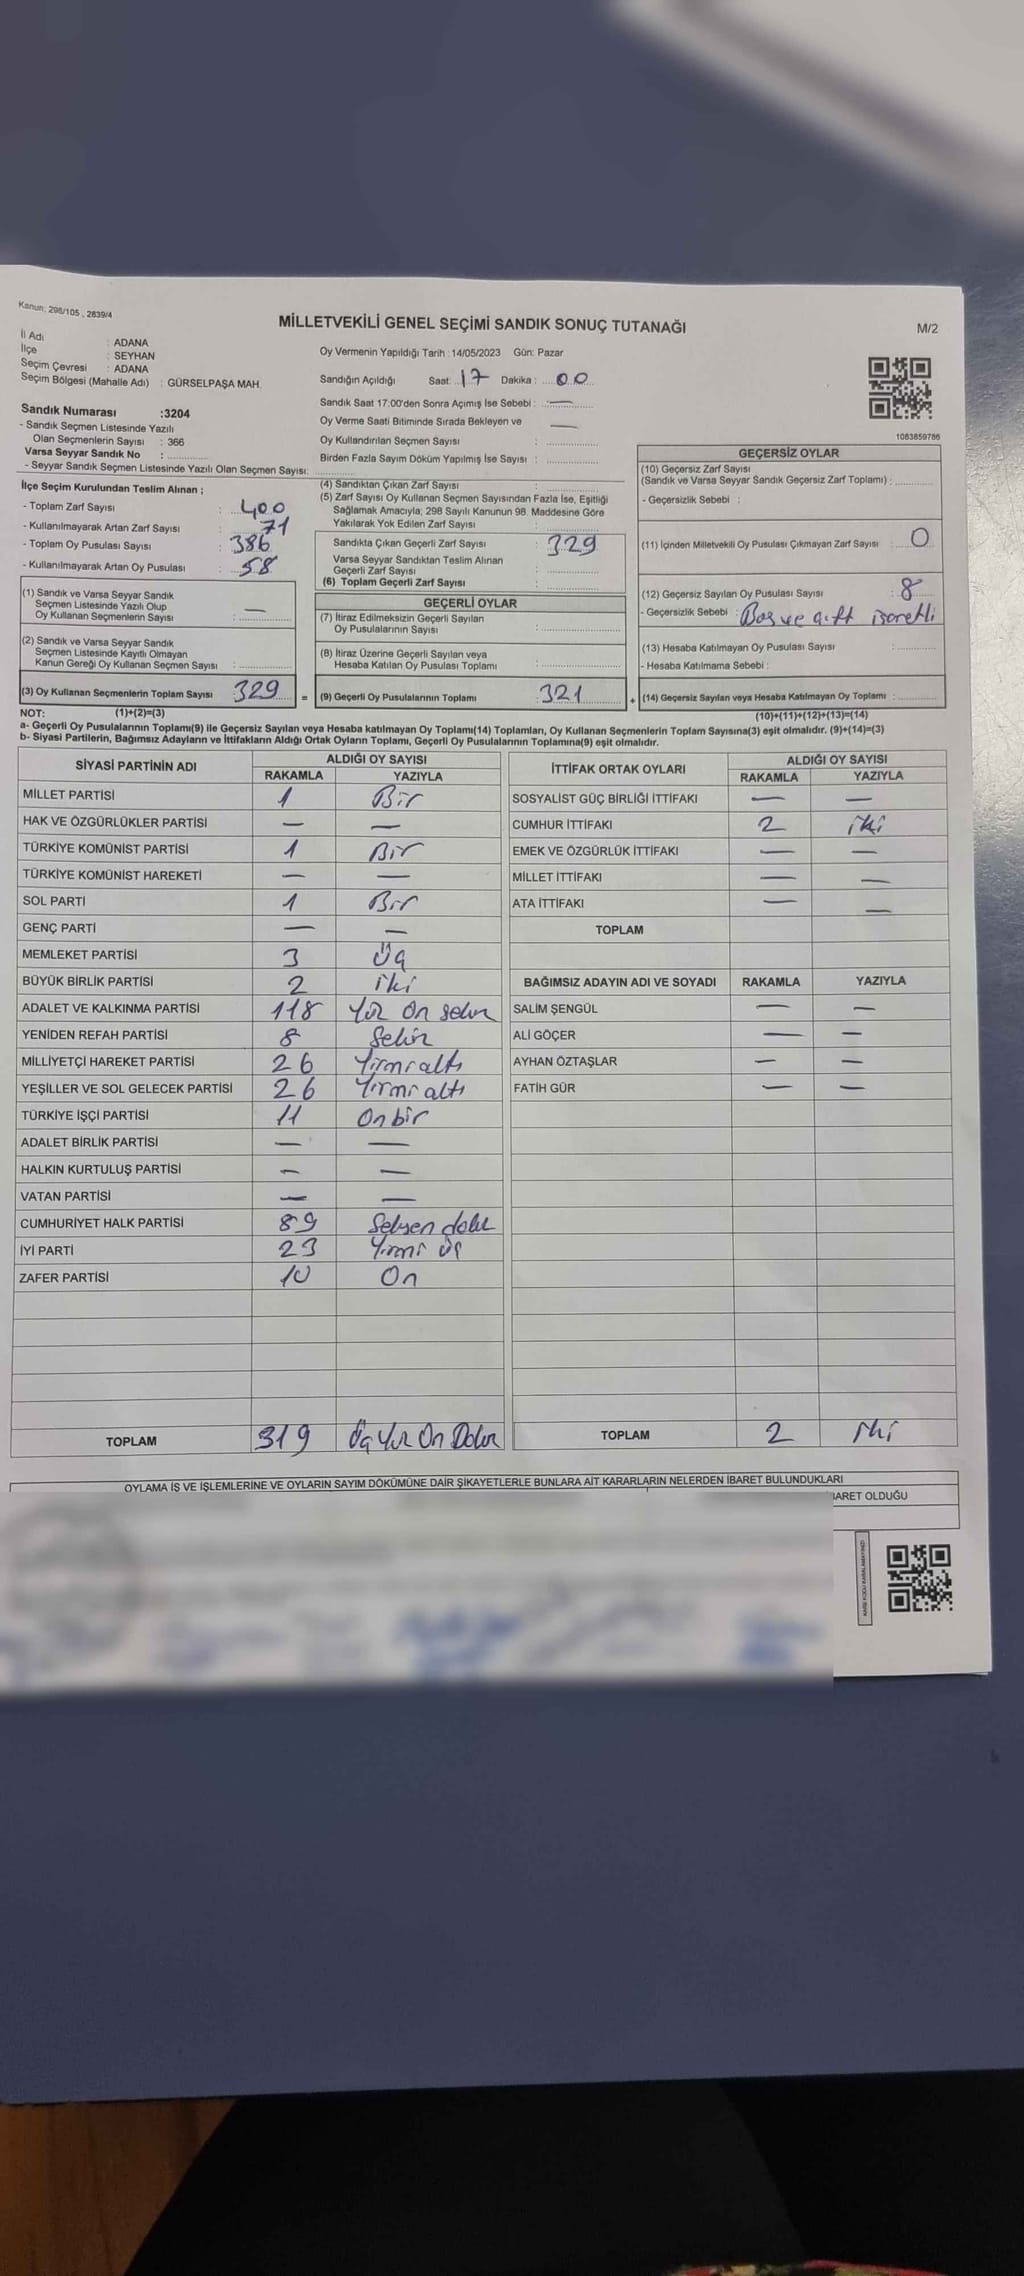 Kanun; 298/105 , 2839/4
MİLLETVEKİLİ GENEL SEÇİMİ SANDIK SONUÇ TUTANAĞI
M/2
İl Adı : ADANA
İlçe : SEYHAN
Seçim Çevresi : ADANA
Seçim Bölgesi (Mahalle Adı) : GÜRSELPAŞA MAH.
Sandık Numarası :3204
- Sandık Seçmen Listesinde Yazılı
Olan Seçmenlerin Sayısı : 366
Varsa Seyyar Sandık No :
- Seyyar Sandık Seçmen Listesinde Yazılı Olan Seçmen Sayısı:
Oy Vermenin Yapıldığı Tarih :14/05/2023 Gün: Pazar
Sandığın Açıldığı Saat: 17 Dakika : 00
Sandık Saat 17:00'den Sonra Açımış İse Sebebi : —
Oy Verme Saati Bitiminde Sırada Bekleyen ve —
Oy Kullandırılan Seçmen Sayısı :
Birden Fazla Sayım Döküm Yapılmış İse Sayısı :
1083859786
İlçe Seçim Kurulundan Teslim Alınan ;
- Toplam Zarf Sayısı : 400
- Kullanılmayarak Artan Zarf Sayısı : 71
- Toplam Oy Pusulası Sayısı : 386
- Kullanılmayarak Artan Oy Pusulası : 58
(1) Sandık ve Varsa Seyyar Sandık
Seçmen Listesinde Yazılı Olup
Oy Kullanan Seçmenlerin Sayısı : —
(2) Sandık ve Varsa Seyyar Sandık
Seçmen Listesinde Kayıtlı Olmayan
Kanun Gereği Oy Kullanan Seçmen Sayısı :
(3) Oy Kullanan Seçmenlerin Toplam Sayısı 329 =
(4) Sandıktan Çıkan Zarf Sayısı :
(5) Zarf Sayısı Oy Kullanan Seçmen Sayısından Fazla İse, Eşitliği
Sağlamak Amacıyla; 298 Sayılı Kanunun 98. Maddesine Göre
Yakılarak Yok Edilen Zarf Sayısı :
Sandıkta Çıkan Geçerli Zarf Sayısı : 329
Varsa Seyyar Sandıktan Teslim Alınan
Geçerli Zarf Sayısı :
(6) Toplam Geçerli Zarf Sayısı :
GEÇERLİ OYLAR
(7) İtiraz Edilmeksizin Geçerli Sayılan
Oy Pusulalarının Sayısı :
(8) İtiraz Üzerine Geçerli Sayılan veya
Hesaba Katılan Oy Pusulası Toplamı :
(9) Geçerli Oy Pusulalarının Toplamı 321 +
GEÇERSİZ OYLAR
(10) Geçersiz Zarf Sayısı
(Sandık ve Varsa Seyyar Sandık Geçersiz Zarf Toplamı) :
- Geçersizlik Sebebi :
(11) İçinden Milletvekili Oy Pusulası Çıkmayan Zarf Sayısı : 0
(12) Geçersiz Sayılan Oy Pusulası Sayısı : 8
- Geçersizlik Sebebi : Boş ve çift işaretli
(13) Hesaba Katılmayan Oy Pusulası Sayısı :
- Hesaba Katılmama Sebebi :
(14) Geçersiz Sayılan veya Hesaba Katılmayan Oy Toplamı :
NOT: (1)+(2)=(3) (10)+(11)+(12)+(13)=(14)
a- Geçerli Oy Pusulalarının Toplamı(9) ile Geçersiz Sayılan veya Hesaba katılmayan Oy Toplamı(14) Toplamları, Oy Kullanan Seçmenlerin Toplam Sayısına(3) eşit olmalıdır. (9)+(14)=(3)
b- Siyasi Partilerin, Bağımsız Adayların ve İttifakların Aldığı Ortak Oyların Toplamı, Geçerli Oy Pusulalarının Toplamına(9) eşit olmalıdır.
SİYASİ PARTİNİN ADI ALDIĞI OY SAYISI
RAKAMLA YAZIYLA
MİLLET PARTİSİ 1 Bir
HAK VE ÖZGÜRLÜKLER PARTİSİ — —
TÜRKİYE KOMÜNİST PARTİSİ 1 Bir
TÜRKİYE KOMÜNİST HAREKETİ — —
SOL PARTİ 1 Bir
GENÇ PARTİ — —
MEMLEKET PARTİSİ 3 Üç
BÜYÜK BİRLİK PARTİSİ 2 iki
ADALET VE KALKINMA PARTİSİ 118 Yüz On sekiz
YENİDEN REFAH PARTİSİ 8 Sekiz
MİLLİYETÇİ HAREKET PARTİSİ 26 Yirmi altı
YEŞİLLER VE SOL GELECEK PARTİSİ 26 Yirmi altı
TÜRKİYE İŞÇİ PARTİSİ 11 On bir
ADALET BİRLİK PARTİSİ — —
HALKIN KURTULUŞ PARTİSİ — —
VATAN PARTİSİ — —
CUMHURİYET HALK PARTİSİ 89 Seksen dokuz
İYİ PARTİ 23 Yirmi üç
ZAFER PARTİSİ 10 On
TOPLAM 319 Üç Yüz On Dokuz
İTTİFAK ORTAK OYLARI ALDIĞI OY SAYISI
RAKAMLA YAZIYLA
SOSYALİST GÜÇ BİRLİĞİ İTTİFAKI — —
CUMHUR İTTİFAKI 2 iki
EMEK VE ÖZGÜRLÜK İTTİFAKI — —
MİLLET İTTİFAKI — —
ATA İTTİFAKI — —
TOPLAM
BAĞIMSIZ ADAYIN ADI VE SOYADI RAKAMLA YAZIYLA
SALİM ŞENGÜL — —
ALİ GÖÇER — —
AYHAN ÖZTAŞLAR — —
FATİH GÜR — —
TOPLAM 2 iki
OYLAMA İŞ VE İŞLEMLERİNE VE OYLARIN SAYIM DÖKÜMÜNE DAİR ŞİKAYETLERLE BUNLARA AİT KARARLARIN NELERDEN İBARET BULUNDUKLARI
OLDUĞU